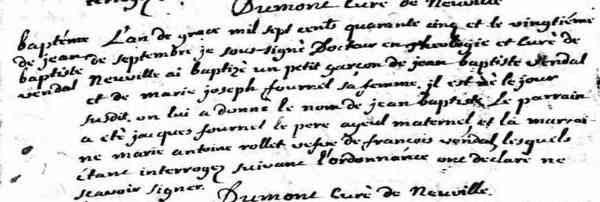 Dumont Curé de Neuville
baptéme L'an de grace mil sept cents quarante cinq et le vingtiéme
de jean de septembre je sous-signé Docteur en theologie et Curé de
baptiste Neuville ai baptizé un petit garçon de jean baptiste vendal
vendal et de marie joseph fournel sa femme, il est né le jour
susdit, on lui a donné le nom de jean baptiste. Le parrain
a eté jacques fournel le pere ayeul maternel et la marrai-
ne marie antoine rollet vefve de francois vendal, lesquels
étant interrogez suivant l'ordonnance ont declaré ne
scavoir signer.
Dumont Curé de Neuville.